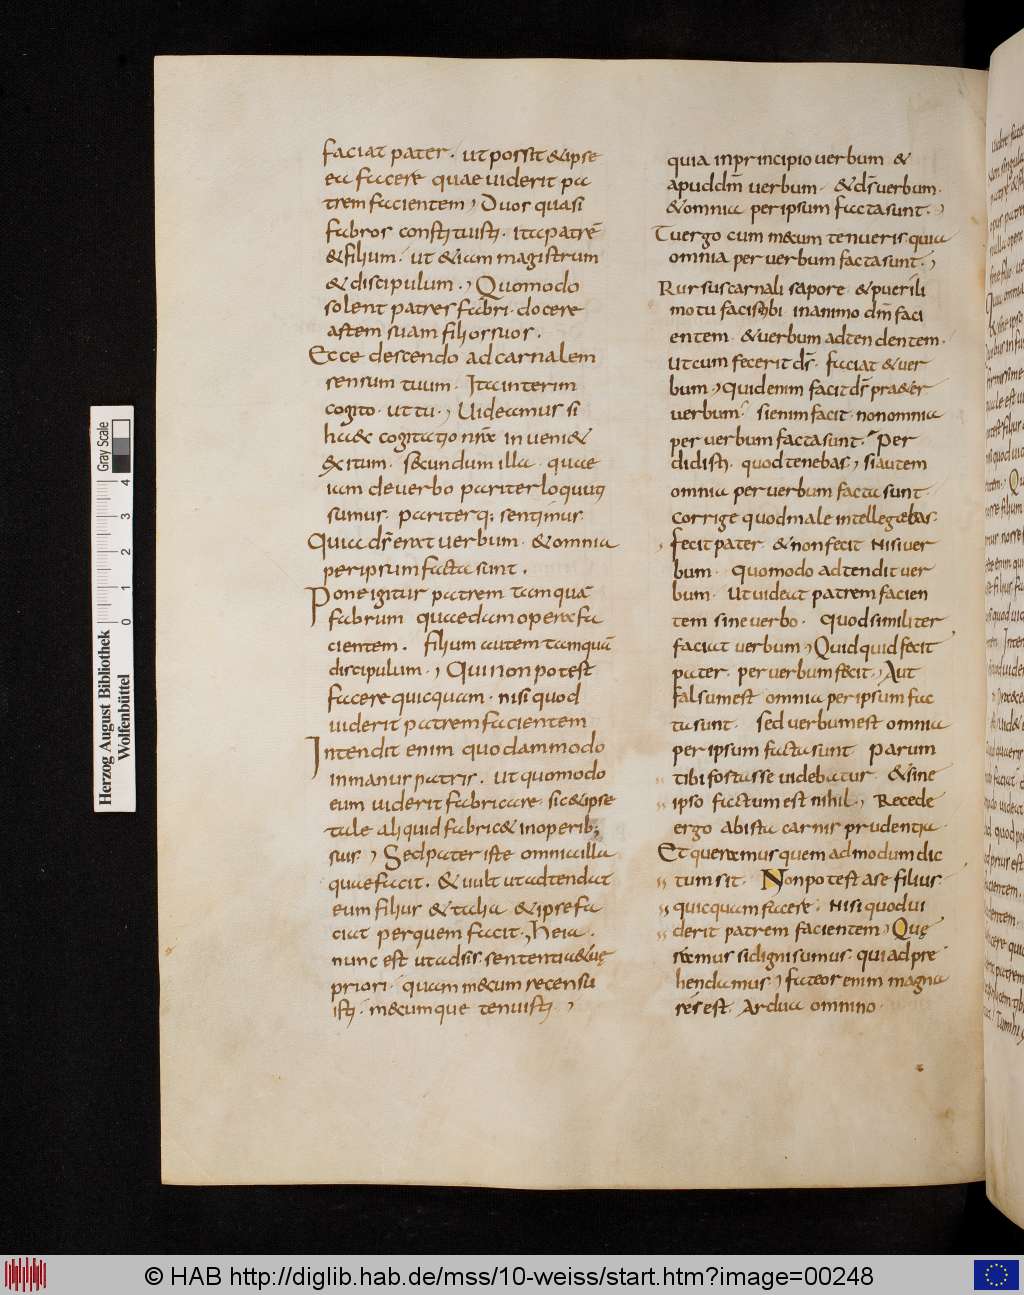 faciat pater. ut possit & ipse
ea facere quae uiderit pa
trem facientem; Duos quasi
fabros constituisti. ita patrē
& filium. ut & iam magistrum
& discipulum.; Quomodo
solent patres fabri. docere
artem suam filios suos.
Ecce descendo ad carnalem
sensum tuum. Ita interim
cogito. ut tu.; Uideamus si
haec cogitatio nr̄a inueni&
exitum. secundum illa. quae
iam de uerbo pariter locuti
sumus. pariterq; sentimus.
Quia d̄s erat uerbum. & omnia
per ipsum facta sunt.
Pone igitur patrem tamquā
fabrum quaedam opera fa
cientem. filium autem tamquā
discipulum.; Qui non potest
facere quicquam. nisi quod
uiderit patrem facientem
Intendit enim quodammodo
in manus patris. ut quomodo
eum uiderit fabricare. sic & ipse
tale aliquid fabric& in operib;
suis.; Sed pater iste omnia illa
quae facit. & uult ut adtendat
eum filius & talia & ipse fa
ciat per quem facit.; heia.
nunc est ut adsis sententiae
priori. quam mecum recensu
isti. mecumque tenuisti.;
quia in principio uerbum &
apud dm̄ uerbum. & d̄s uerbum.
& omnia per ipsum facta sunt.;
Tu ergo cum mecum tenueris quia
omnia per uerbum facta sunt.;
Rursus carnali sapore & puerili
motu facis tibi in animo dm̄ faci
entem. & uerbum adtendentem.
ut cum fecerit d̄s. faciat & uer
bum.; Quid enim facit d̄s praeter
uerbum. si enim facit. non omnia
per uerbum facta sunt. Per
didisti. quod tenebas.; si autem
omnia per uerbum facta sunt.
corrige quod male intellegebas.
fecit pater. & non fecit nisi uer
bum. Quomodo adtendit uer
bum. ut uideat patrem facien
tem sine uerbo. quod similiter
faciat uerbum; Quidquid fecit
pater. per uerbum fecit.; Aut
falsum est omnia per ipsum fac
ta sunt. sed uerum est omnia
per ipsum facta sunt parum
tibi fortasse uidebatur. & sine
ipso factum est nihil.; Recede
ergo abista carnis prudentia.
Et queramus quem admodum dic
tum sit. Non potest a se filius.
quicquam facere. nisi quod ui
derit patrem facientem; Quę
ramus si digni sumus. qui adpre
hendamus.; fateor enim magna
res est. Ardua omnino.
Herzog August Bibliothek
Wolfenbüttel
0 1 2 3 4
Gray Scale
© HAB http://diglib.hab.de/mss/10-weiss/start.htm?image=00248